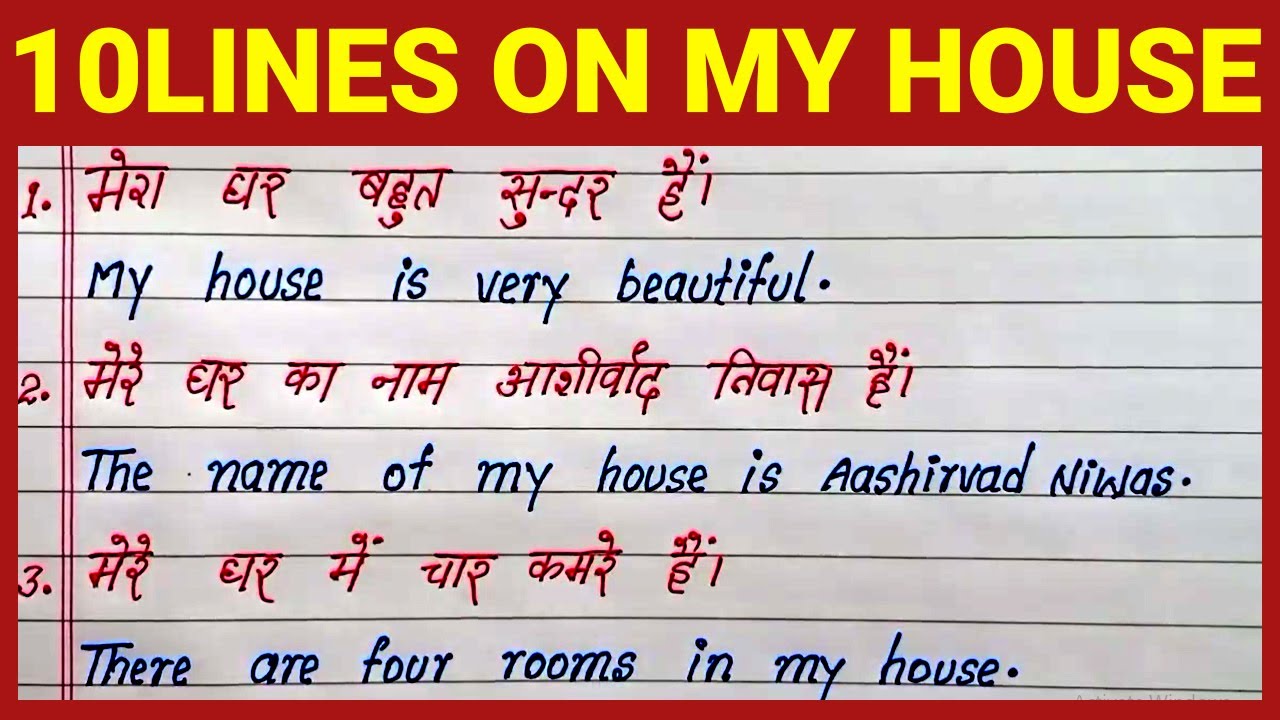 10LINES ON MY HOUSE
1. मेरा घर बहुत सुन्दर हैं।
My house is very beautiful.
2. मेरे घर का नाम आशीर्वाद निवास हैं।
The name of my house is Aashirvad Niwas.
3. मेरे घर में चार कमरे हैं।
There are four rooms in my house.